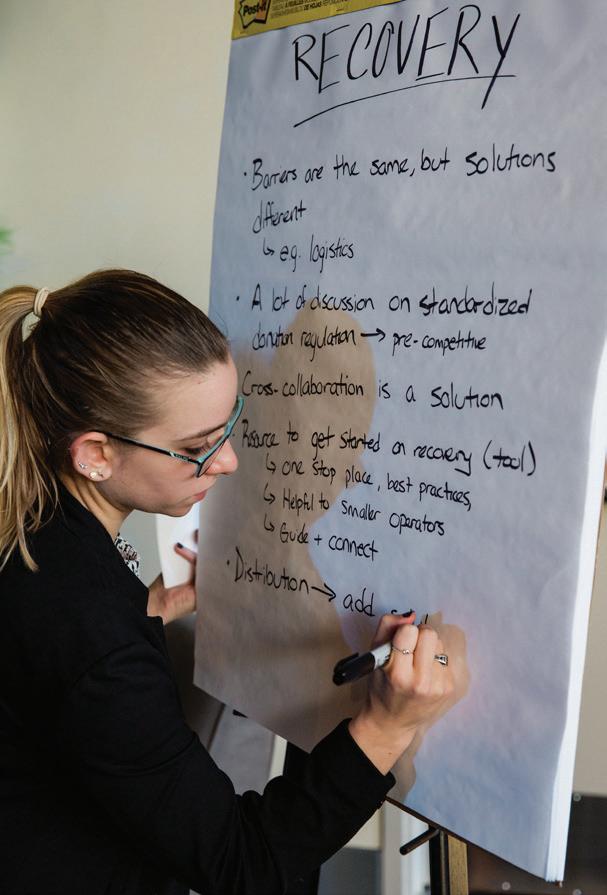 Post-it
RECOVERY
· Barriers are the same, but solutions
different
↳ e.g. logistics
· A lot of discussion on standardized
donation regulation → pre-competitive
Cross-collaboration is a solution
· Resource to get started on recovery (tool)
↳ one stop place, best practices,
↳ Helpful to smaller operators
↳ Guide + connect
· Distribution → add